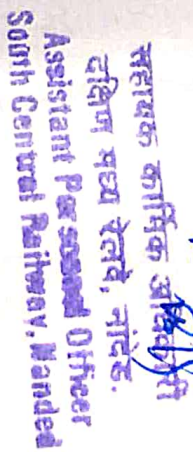 सहायक कार्मिक अधिकारी
दक्षिण मध्य रेलवे, नांदेड.
Assistant Personnel Officer
South Central Railway, Nanded